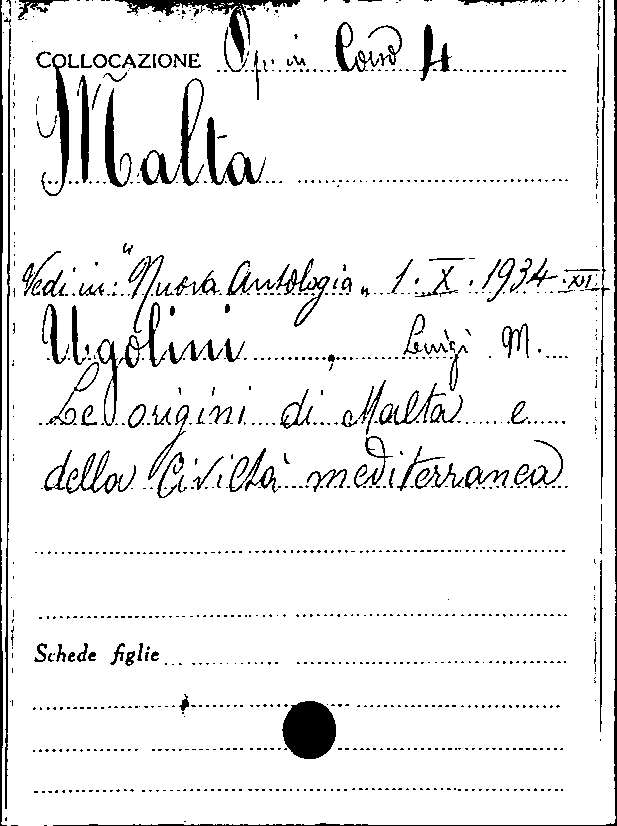 COLLOCAZIONE Op. in Corso 4
Malta
Vedi in: "Nuova Antologia„ 1. X. 1934 - XII
Ugolini, Luigi M.
Le origini di Malta e
della Civiltà mediterranea
Schede figlie